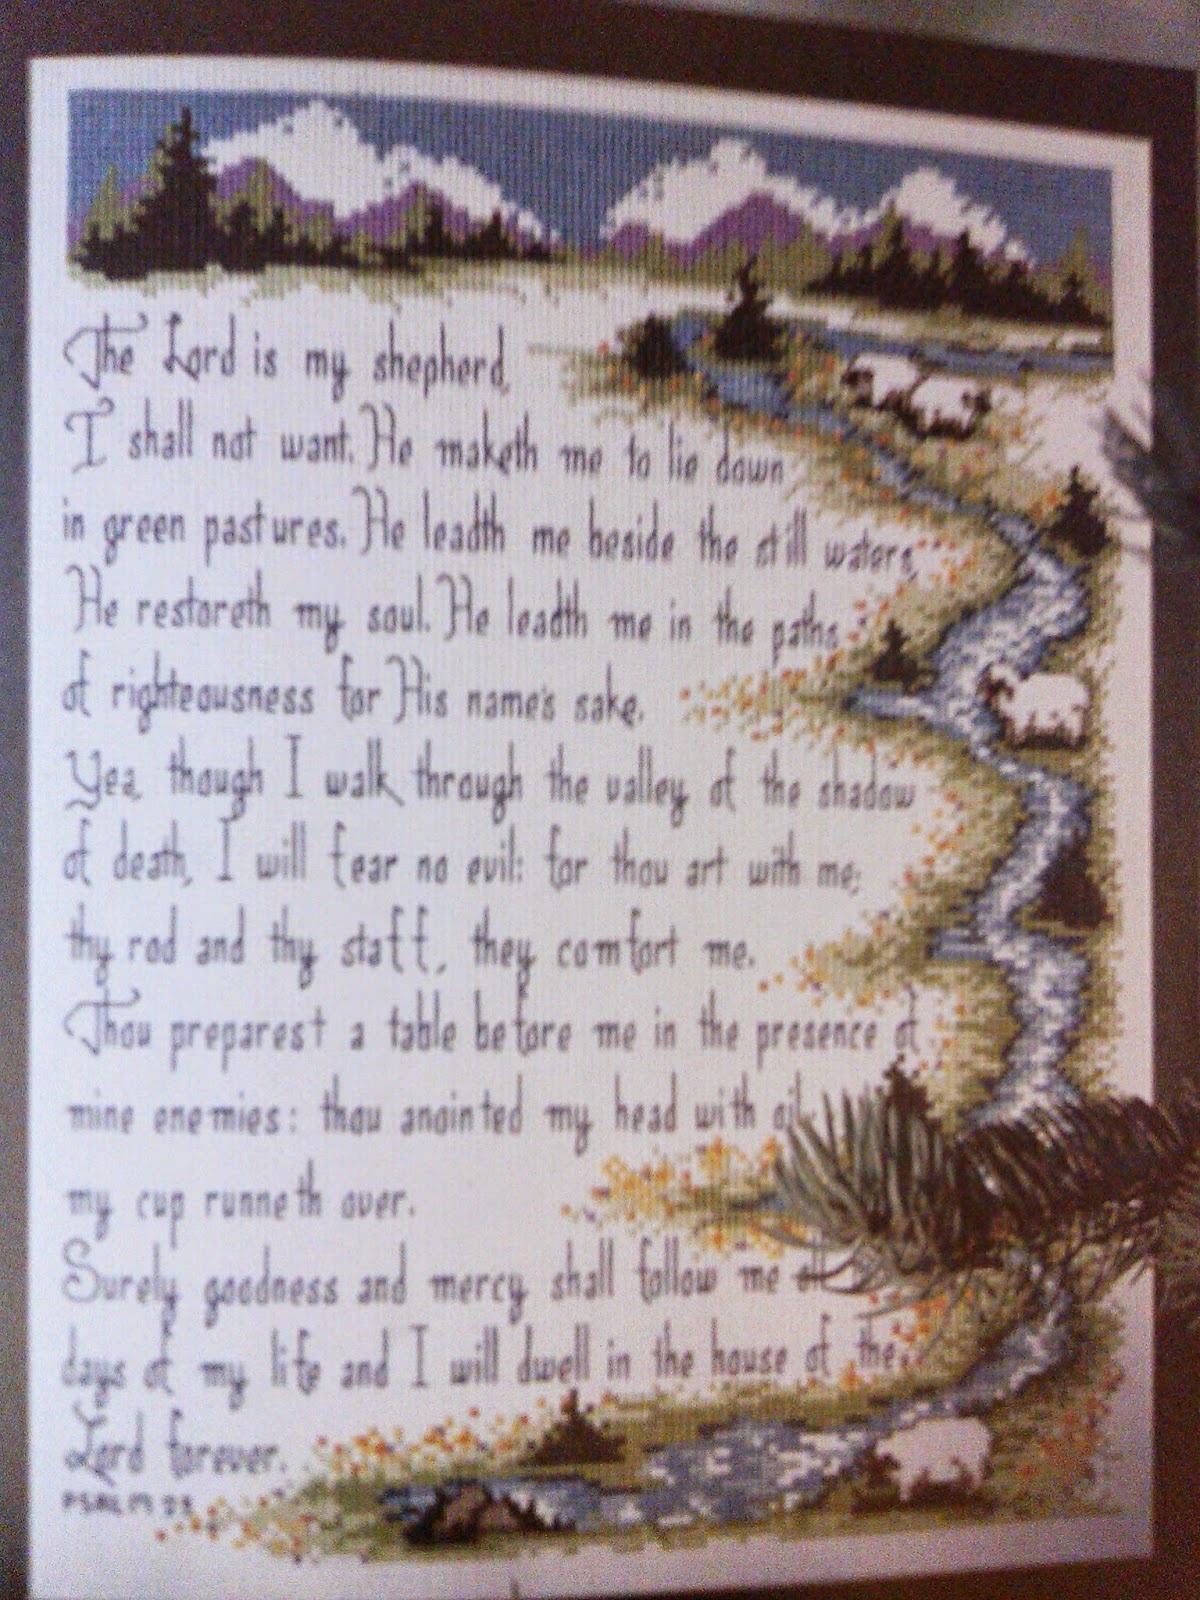 The Lord is my shepherd,
I shall not want. He maketh me to lie down
in green pastures. He leadth me beside the still waters,
He restoreth my soul. He leadth me in the paths
of righteousness for His name's sake.
Yea, though I walk through the valley of the shadow
of death, I will fear no evil: for thou art with me;
thy rod and thy staff, they comfort me.
Thou preparest a table before me in the presence of
mine enemies: thou anointed my head with oil:
my cup runneth over.
Surely goodness and mercy shall follow me all
days of my life and I will dwell in the house of the
Lord forever.
PSALM 23